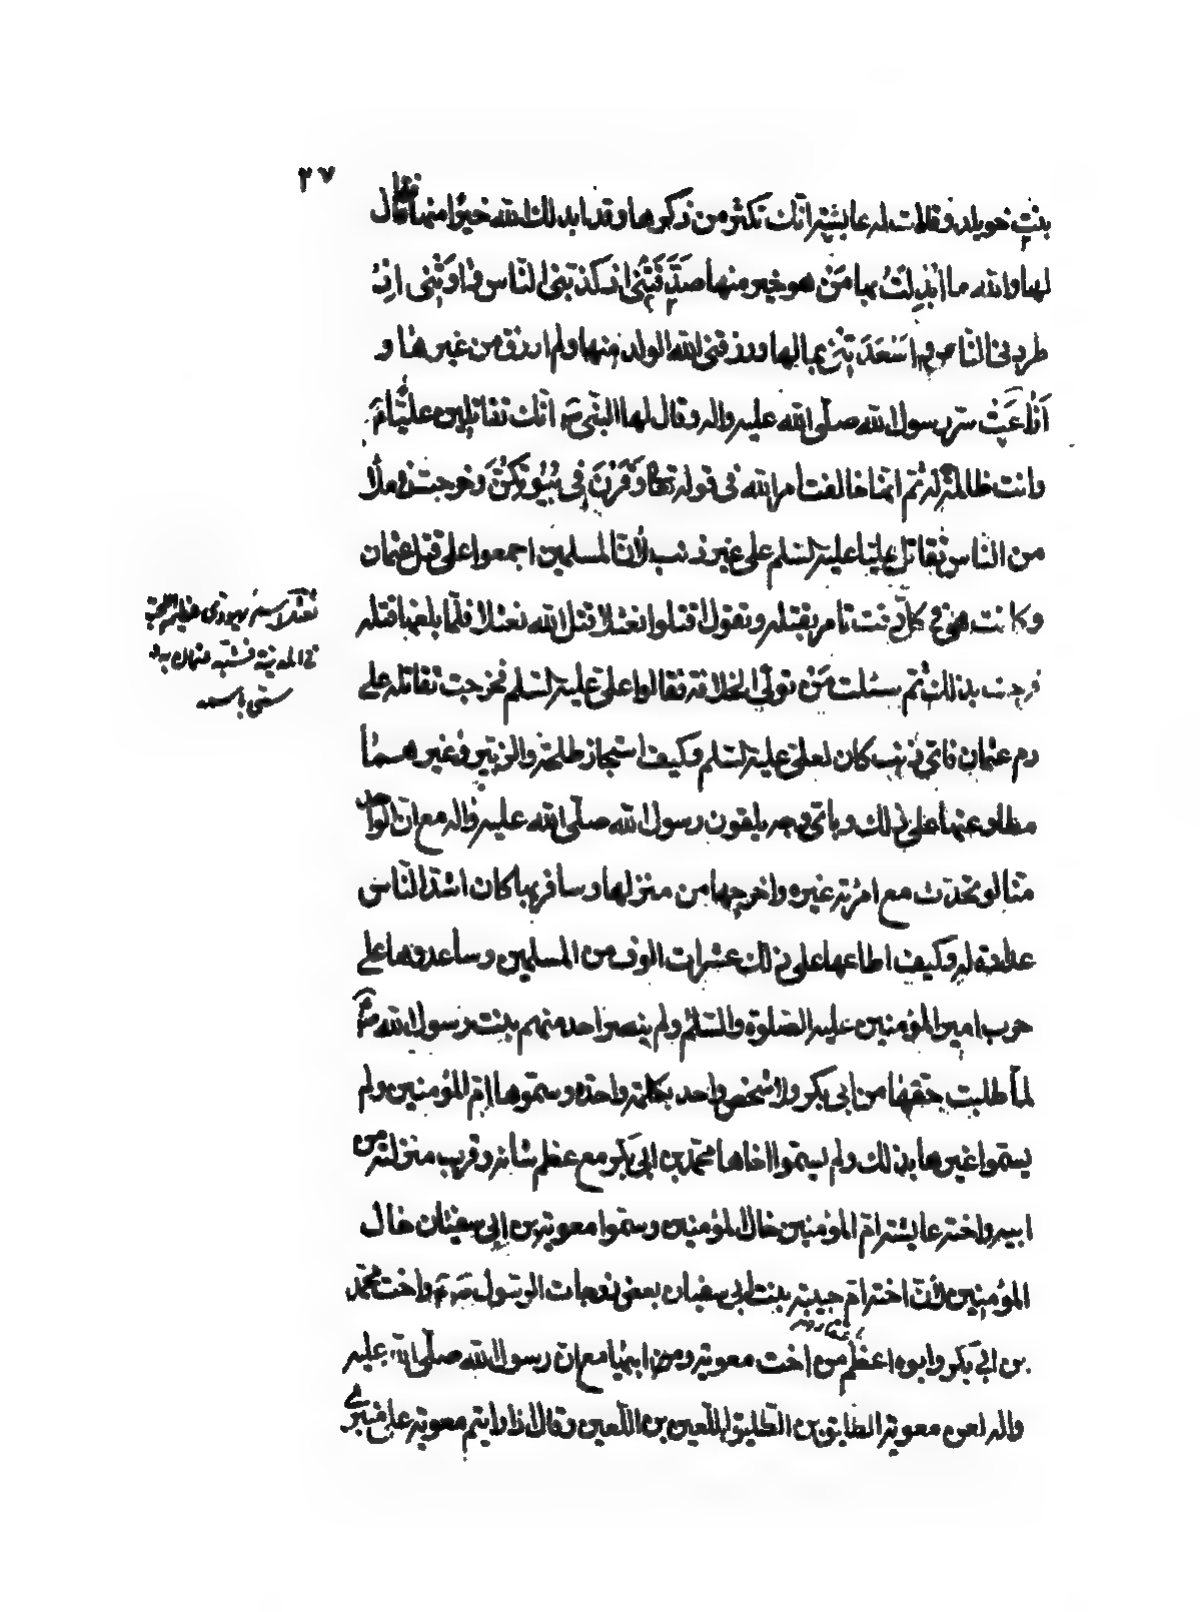 ٢٧
بنت خويلد وقالت له عايشة انك تكثر من ذكرها وقد ابدلك الله خيرا منها فقال
لها والله ما ابدلت بها من هو خير منها صدقتنى اذ كذبنى الناس واوتنى اذ
طردنى الناس واسعدتنى بمالها ورزقنى الله الولد منها ولم ارزق من غيرها و
اذاعت سر رسول الله صلى الله عليه واله وقال لها النبى ص انك تقاتلين عليا ع
وانت ظالمة له ثم انها خالفت امر الله فى قوله تعالى وقرن فى بيوتكن وخرجت فى ملأ
من الناس تقاتل عليا عليه السلم على غير ذنب لأن المسلمين اجمعوا على قتل عثمان
وكانت هى فى كل وقت تامر بقتله وتقول اقتلوا نعثلا قتل الله نعثلا فلما بلغها قتله
فرحت بذلك ثم سئلت من تولى الخلافة فقالوا على عليه السلم فخرجت تقاتله على
دم عثمان فاى ذنب كان لعلى عليه السلم وكيف استجاز طلحة والزبير وغيرهما
مطاوعتها على ذلك وباى وجه يلقون رسول الله صلى الله عليه واله مع ان الواحد
منا لو تحدث مع امرئة غيره واخرجها من منزلها وسافر بها كان اشد الناس
عداوة له وكيف اطاعها على ذلك عشرات الوف من المسلمين وساعدوها على
حرب امير المؤمنين عليه الصلوة والسلم ولم ينصر احد منهم بنت رسول الله ص
لما طلبت حقها من ابى بكر ولا شخص واحد بكلمة واحدة وسموها ام المؤمنين ولم
يسموا غيرها بذلك ولم يسموا اخاها محمد بن ابى بكر مع عظم شانه وقرب منزلته من
ابيه واخته عايشة ام المؤمنين خال المؤمنين وسموا معوية بن ابى سفيان خال
المؤمنين لأن اخته ام حبيبة بنت ابى سفيان بعض زوجات الرسول ص واخت محمد
بن ابى بكر وابوه اعظم من اخت معوية ومن ابيها مع ان رسول الله صلى الله عليه
واله لعن معوية الطليق بن الطليق اللعين بن اللعين وقال اذا رايتم معوية على منبرى
نعثلا يهودى
فى المدينة عثمان به
سمى باسمه